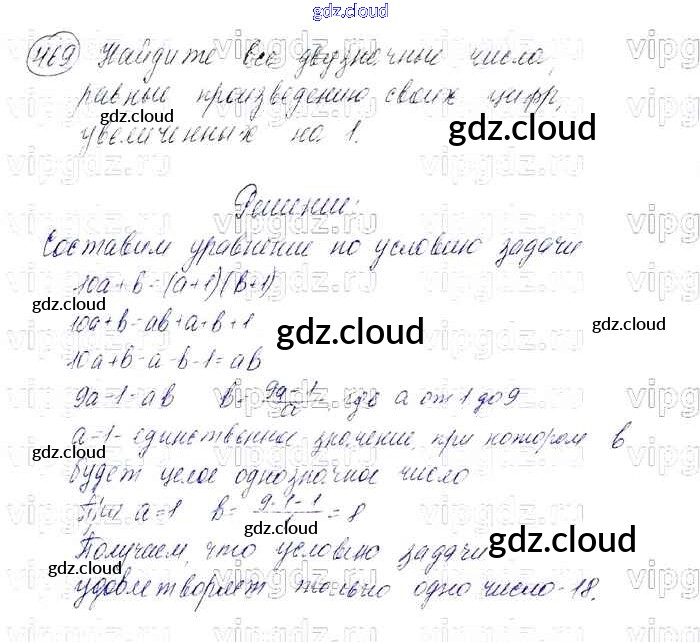 gdz.cloud
469 Найдите все двузначные числа,
равные произведению своих цифр,
увеличенных на 1.
gdz.cloud
Решение:
Составим уравнение по условию задачи
10a+b=(a+1)(b+1)
gdz.cloud
10a+b=ab+a+b+1
gdz.cloud
gdz.cloud
10a+b-a-b-1=ab
9a-1=ab b=9a-1/a, где a от 1 до 9
a=1- единственное значение, при котором b
gdz.cloud
будет целое однозначное число
При a=1 b=9·1-1/1=8
gdz.cloud
Получаем, что условию задачи
gdz.cloud
удовлетворяет только одно число-18.